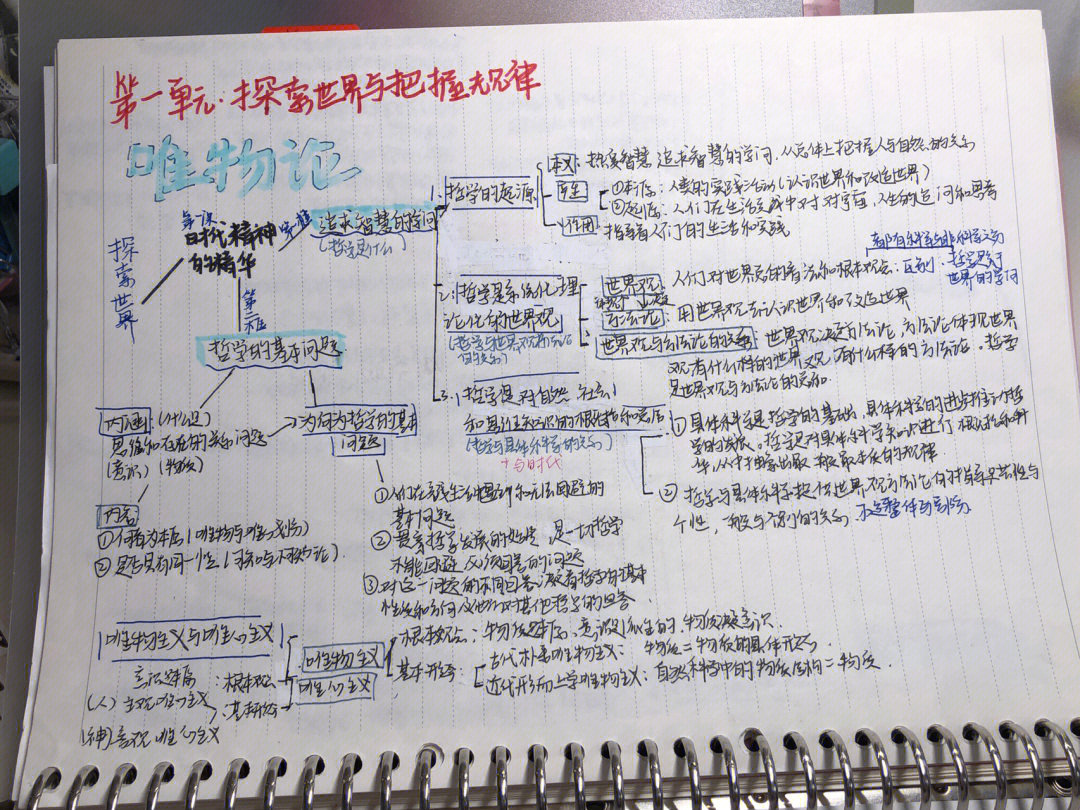 第一单元·探索世界与把握规律
唯物论
探索世界
第一课
时代精神
的精华
第一框
追求智慧的学问
(哲学是什么)
1.哲学的起源
本义: 热爱智慧 追求智慧的学问,从总体上把握人与自然的关系
产生
①本源:人类的实践活动(认识世界和改造世界)
②起源:人们在生活实践中对宇宙、人生的追问和思考
作用
指导着人们的生活和实践
2.哲学是系统化理
论化的世界观
(哲学与世界观方法论
的关系)
世界观: 人们对世界总的看法和根本观点.
区别:哲学是关于
世界的学问
方法论: 用世界观去认识世界和改造世界
世界观与方法论的关系: 世界观决定方法论 方法论体现世界
观,有什么样的世界观,有什么样的方法论。哲学
是世界观与方法论的统一
3.哲学是对自然 社会
和思维知识的概括和总结
(哲学与具体科学的关系)
+与时代
①具体科学是哲学的基础,具体科学的进步推动哲
学的发展。哲学是对具体科学知识进行概括和升
华,从中抽象出最一般最本质的规律
②哲学为具体科学提供世界观方法论的指导 共性与
个性,一般与个别的关系,不是整体与部分
第二框
哲学的基本问题
内涵(什么是)
思维和存在的关系问题
(意识) (物质)
内容
①何者为本原(唯物与唯心划分)
②是否具有同一性(可知与不可知论)
为何为哲学的基本
问题
①人们在实践生活中遇到和无法回避的
基本问题
②贯穿哲学发展的始终,是一切哲学
不能回避 必须回答的问题
③对这一问题的不同回答,决定着哲学的基本
性质和方向,及他们对其他哲学的回答
唯物主义与唯心主义
唯物主义
根本观点: 物质是本原,意识派生的,物质决定意识
基本形态:
古代朴素唯物主义: 物质=物质的具体形态
近代形而上学唯物主义: 自然科学中的物质结构=物质
唯心主义
意识是本原 :根本观点
(人)主观唯心主义 :基本形态
(神)客观唯心主义